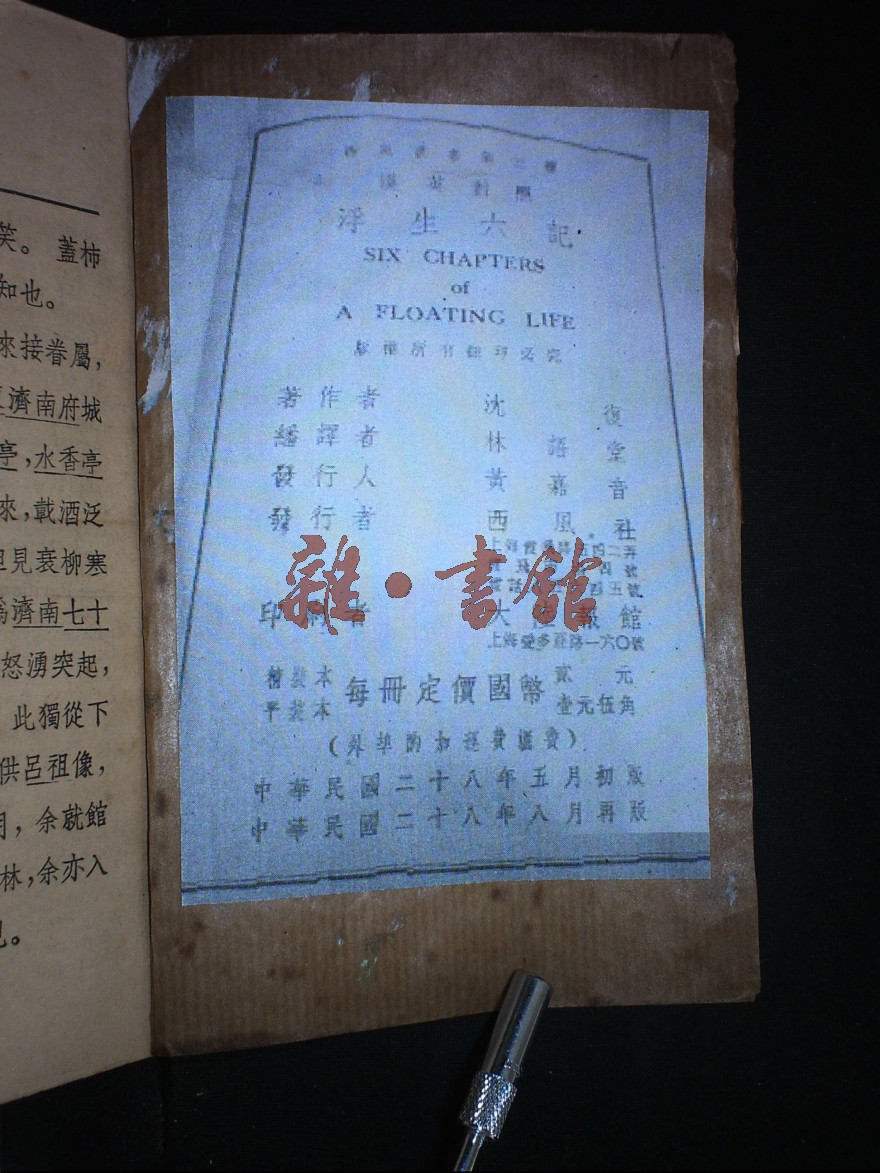 笑。 蓋柿
知也。
來接眷屬,
濟南府城
亭,水香亭
來,載酒泛
但見衰柳寒
爲濟南七十
怒湧突起,
此獨從下
供呂祖像,
余就館
林,余亦入
也。
西風叢書第二種
漢英對照
浮生六記
SIX CHAPTERS
of
A FLOATING LIFE
版權所有翻印必究
著作者 沈復
繙譯者 林語堂
發行人 黃嘉音
發行者 西風社
上海霞飛路
號
五號
雜·書館
印刷者 大美報館
上海愛多亞路一六〇號
精裝本 每冊定價國幣 貳元
平裝本 壹元伍角
(外埠酌加運費匯費)
中華民國二十八年五月初版
中華民國二十八年八月再版